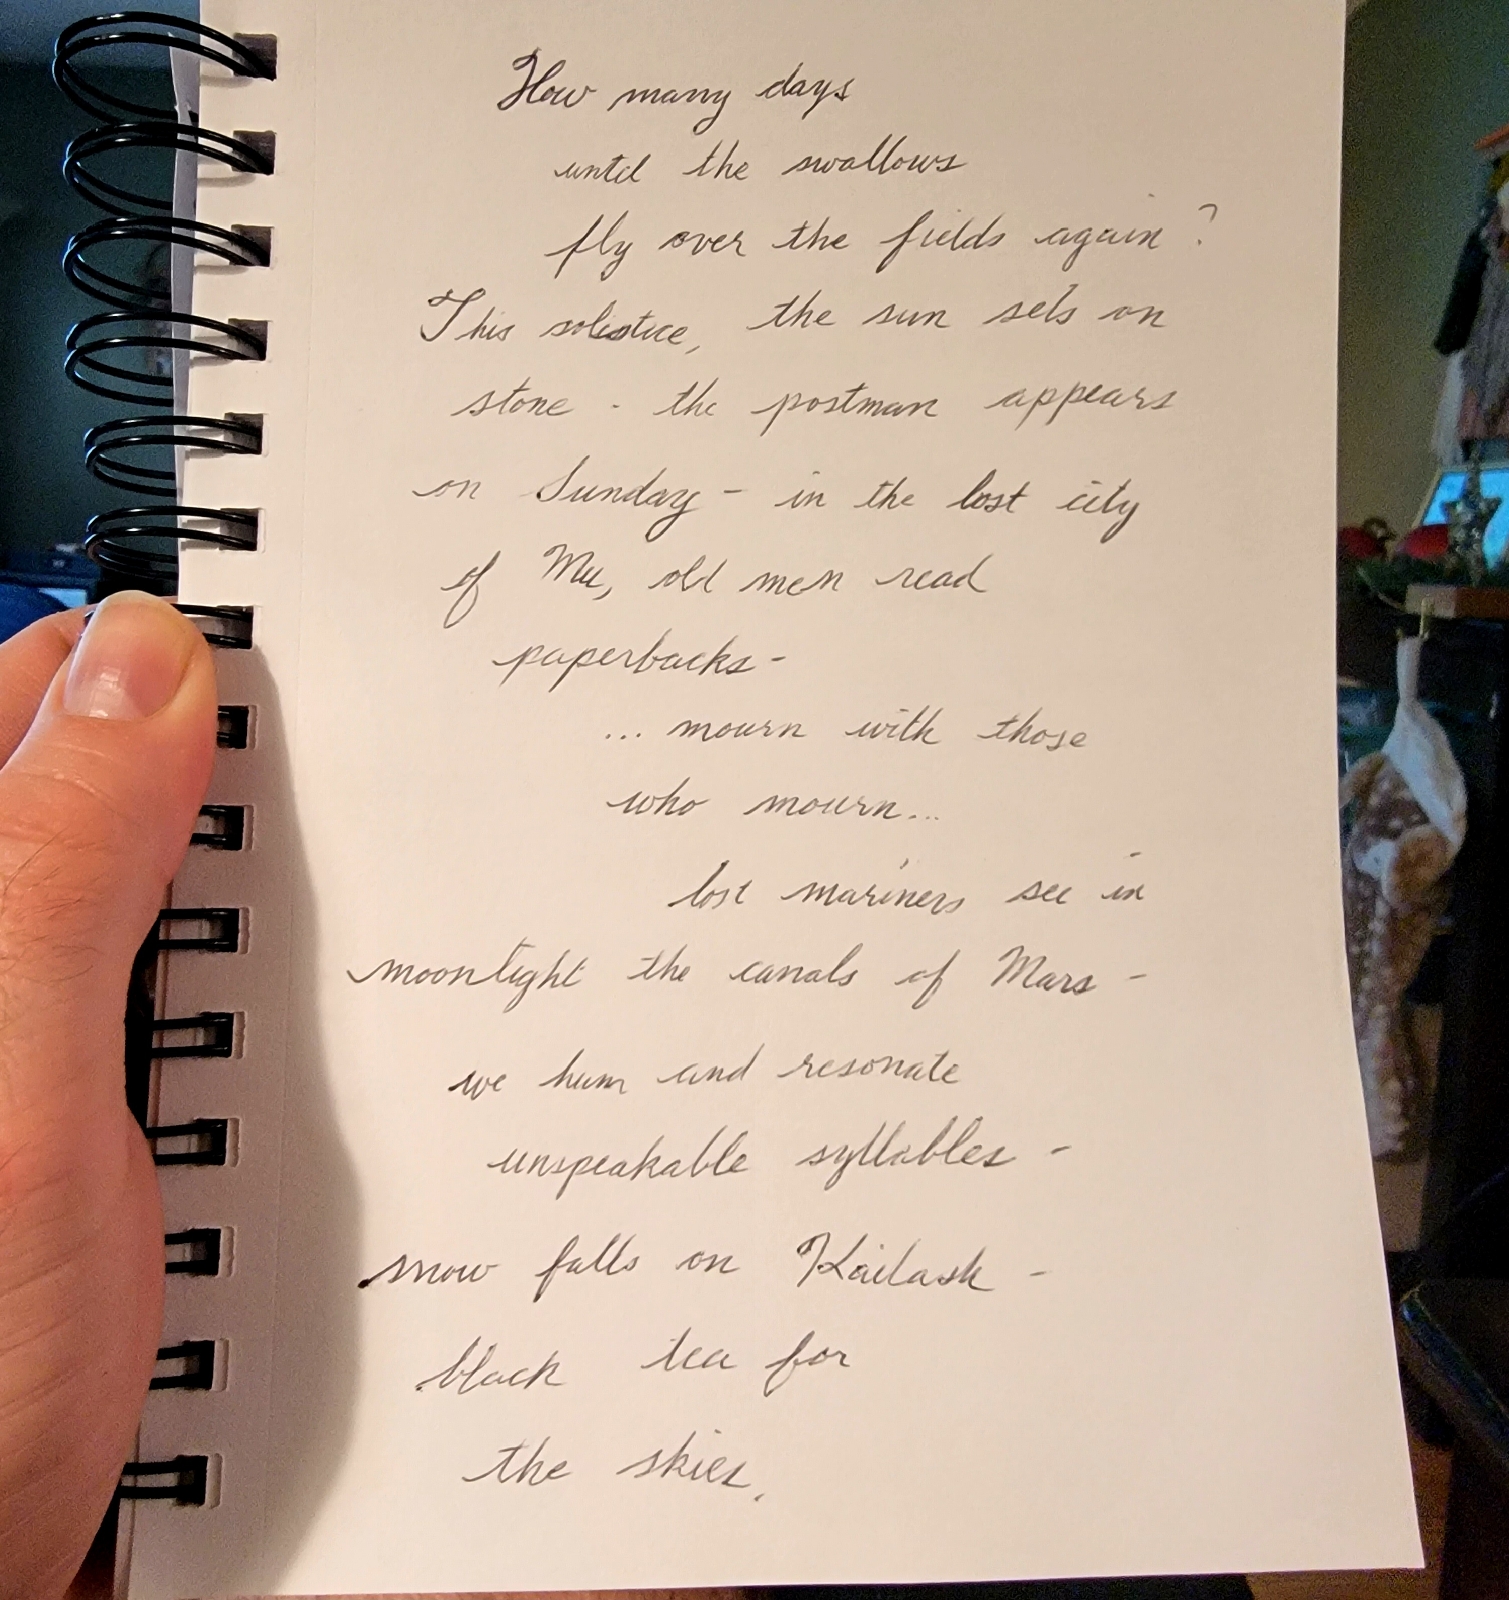 How many days
until the swallows
fly over the fields again?
This solistice, the sun sets on
stone - the postman appears
on Sunday - in the lost city
of Mu, old men read
paperbacks -
... mourn with those
who mourn...
lost mariners see in
moonlight the canals of Mars -
we hum and resonate
unspeakable syllables -
snow falls on Kailash -
black tea for
the skies.